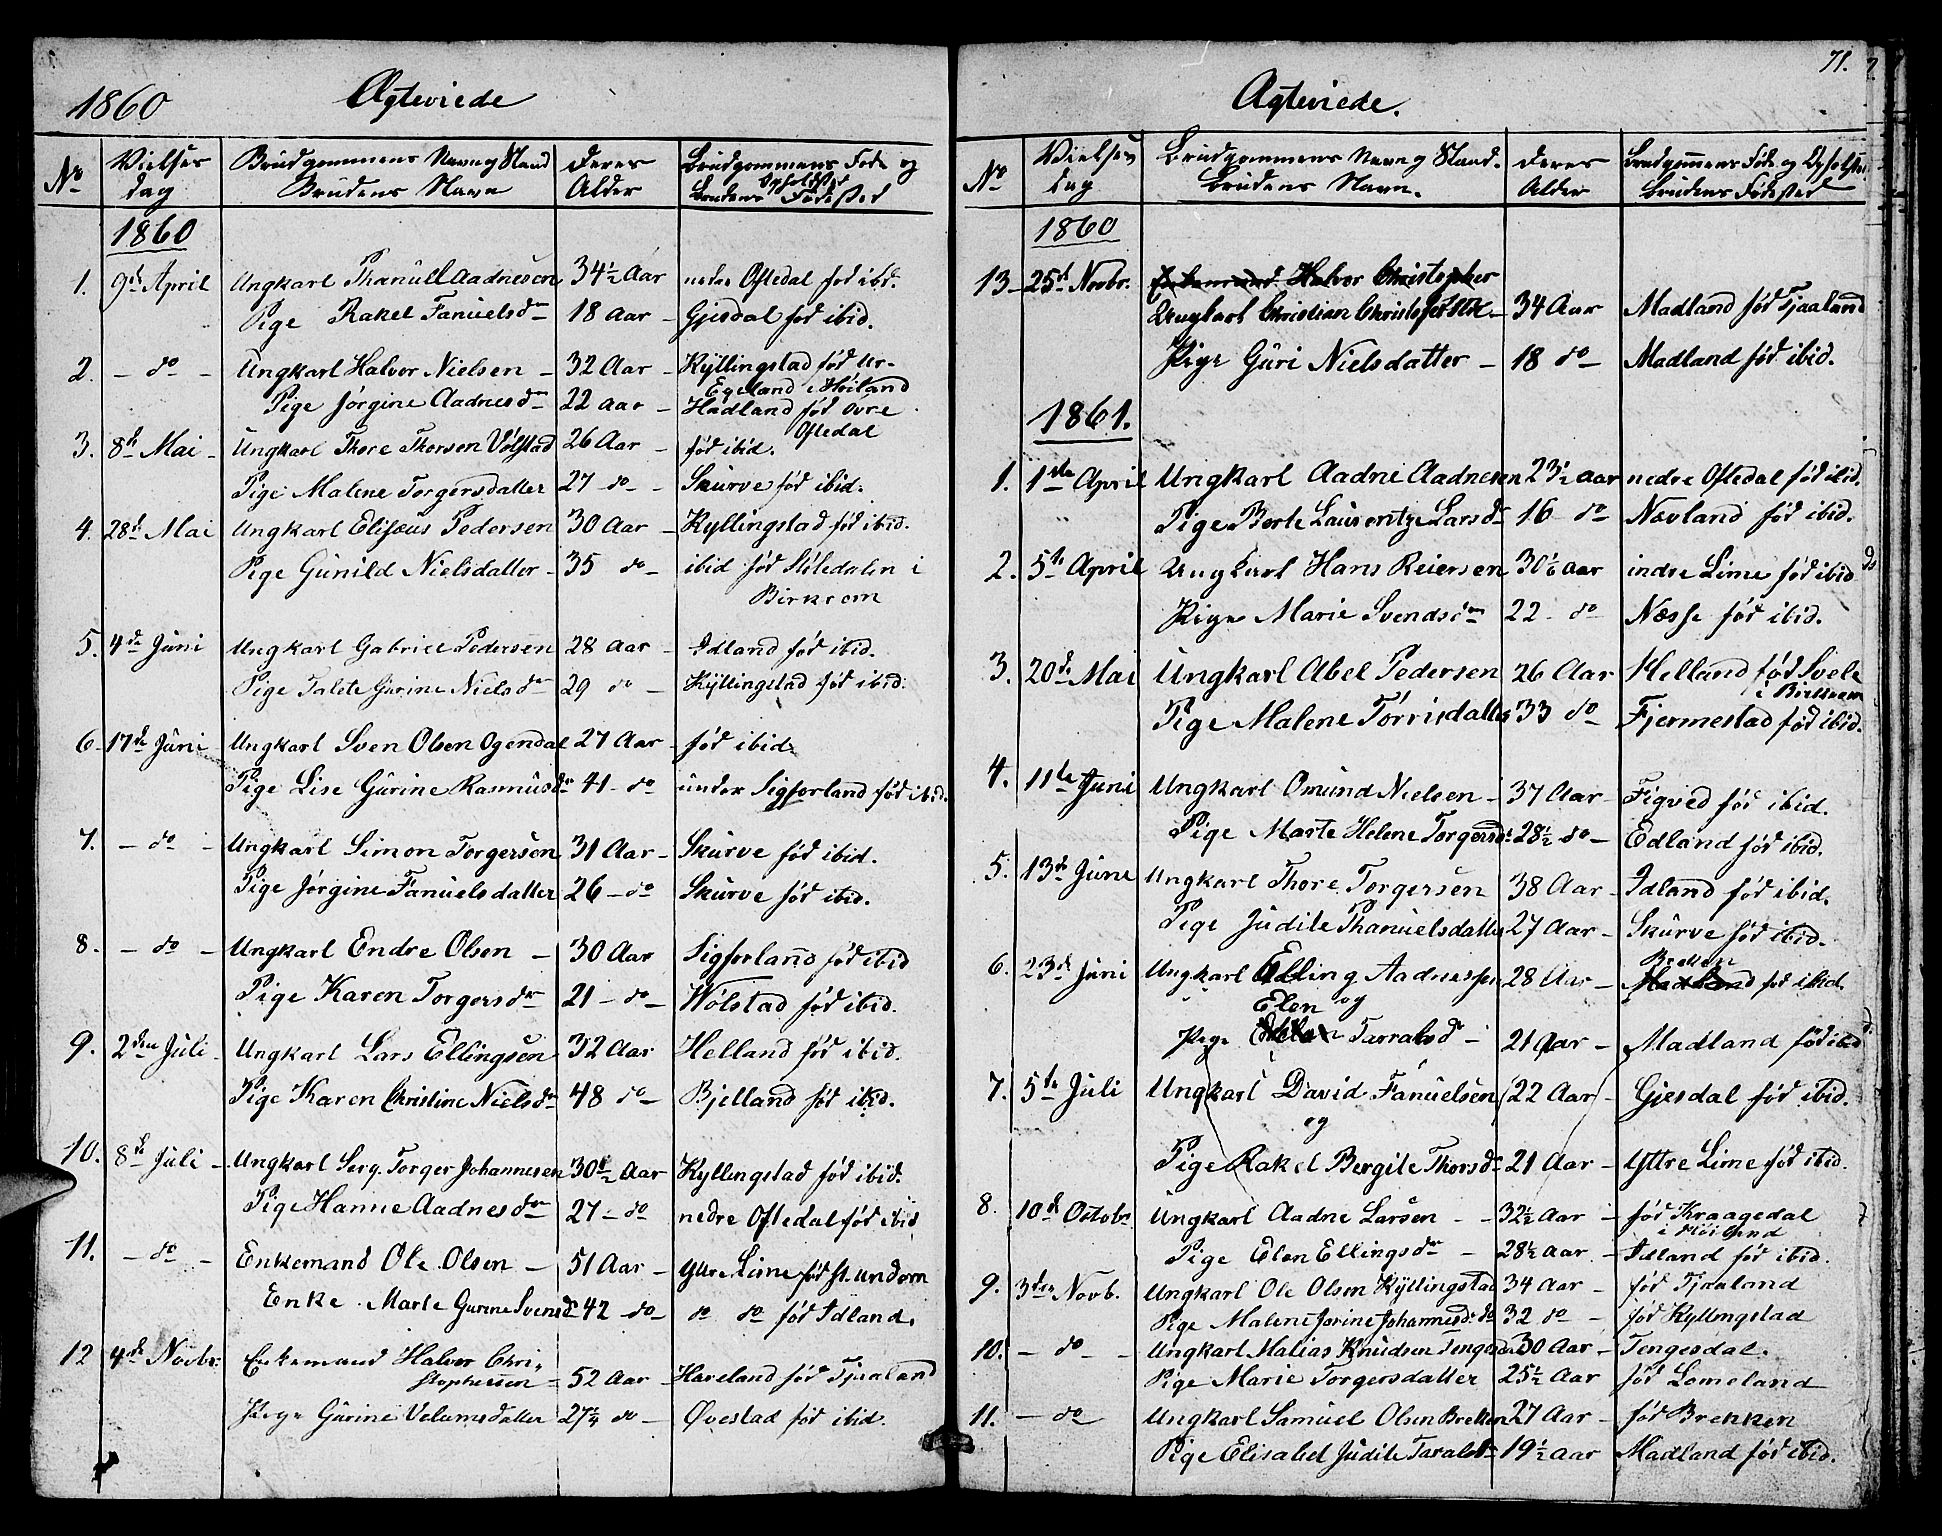 1860 Ægteviede
No Vielses dag Brudgommens Navn og Stand Brudens Navn Deres Alder Brudgommens Føde og Opholdsted Brudens Fødested
1860
1. 9de April Ungkarl Thanuel Aadnesen 34½ Aar nedre Oftedal fød ibd.
Pige Rakel Fanuelsdr 18 Aar - Gjesdal fød ibid.
2. - do - Ungkarl Halvor Nielsen - 32 Aar - Kyllingstad fød ur-
Egeland i Høiland
Pige Jørgine Aadnesdr 22 aar - Hadland fød øvre
Oftedal
3. 8de Mai - Ungkarl Thore Thorsen Vølstad 26 Aar - fød ibid.
Pige Malene Torgersdatter 27 - do - Skurve fød ibid.
4. 28de Mai Ungkarl Elisæus Pedersen 30 Aar - Kyllingstad fød ibid.
Pige Gunild Nielsdatter - 35 do - ibid fød Støledalen i
Birkrem
5. 4de Juni Ungkarl Gabriel Pedersen 28 Aar - Idland fød ibid.
Pige Talete Gurine Nielsdr 29 do - Kyllingstad fød ibid.
6. 17de Juni - Ungkarl Sven Olsen Ogendal 27 Aar - fød ibid.
Pige Lise Gurine Rasmusdr 41 - do under Sigforland fød ibid.
7. - do - Ungkarl Simon Torgersen 31 Aar - Skurve fød ibid.
Pige Jørgine Fanuelsdatter 26 - do Skurve fød ibid.
8. - do - Ungkarl Endre Olsen - 30 Aar Sigforland fød ibid
Pige Karen Torgersdr 21 - do - Wølstad fød ibid.
9. 2den Juli - Ungkarl Lars Ellingsen 32 Aar - Helland fød ibid.
Pige Karen Christine Nielsdr 48 do - Bjelland fød ibid.
10. 8de Juli - Ungkarl Serg. Torger Johannesen 30½ Aar Kyllingstad fød ibid.
Pige Hanne Aadnesdr 27 - do nedre Oftedal fød ibid
11. - do - Enkemand Ole Olsen - 51 Aar - yttre Lime fød st. undem
Enke Marte Gurine Svensdr 42 do - do do fød Idland.
12 4de Novbr: Enkemand Halvor Chri-
stophersen - 52 Aar - Haveland fød Tjaaland
Pige Gurine Velumsdatter 27¼ do - Øvestad fød ibid.
71.
Ægteviede.
No Vielses dag Brudgommens Navn og Stand. Brudens Navn. Deres Alder Brudgommens Føde og Opholdsted Brudens Fødested
1860
13 - 25de Novbr. Enkemand Halvor Christopher
Ungkarl Christian Christofersen - 34 Aar Madland fød Tjaaland
Pige Guri Nielsdatter - 18 do - Madland fød ibid.
1861.
1. 1ste April Ungkarl Aadne Aadnesen 23½ aar nedre Oftedal fød ibid.
Pige Berte Laurentze Larsdr 16 do - Nævland fød ibid.
2. 5te April Ungkarl Hans Reiersen 30⅙ aar indre Lime fød ibid
Pige Marie Svendsdr 22 - do - Næsse fød ibid.
3. 20de Mai Ungkarl Abel Pedersen 26 Aar Helland fød Svele
i Birkrem
Pige Malene Tørrisdatter 33 do - Fjermestad fød ibid.
4. 11te Juni Ungkarl Omund Nielsen - 37 Aar - Figved fød ibid.
Pige Marte Helene Torgersdr 28½ do - Edland fød ibid.
5. 13de Juni Ungkarl Thore Torgersen 38 Aar - Idland fød ibid.
Pige Judite Thanuelsdatter 27 Aar - Skurve fød ibid.
6. 23de Juni Ungkarl Elling Aadnessen 28 Aar - Brekken
Madland fød ibid.
Elen og
Pige Tarralsdr - 21 Aar - Madland fød ibid
7. 5te Juli Ungkarl David Fanuelsen 22 Aar - Gjesdal fød ibid.
og
Pige Rakel Bergite Thorsdr 21 Aar - Yttre Lime fød ibid.
8. 10de Octobr Ungkarl Aadne Larsen - - 32½ Aar - fød Kraagedal
i Høiland
Pige Elen Ellingsdr - 28½ aar - Idland fød ibid.
9. 3die Novb. Ungkarl Ole Olsen Kyllingstad 34 aar - fød Tjaaland
Pige Malene Jorine Johannesdr 32 do - fød Kyllingstad
10. - do - Ungkarl Malias Knudsen Tengesdal 30 Aar - Tengesdal.
Pige Marie Torgersdatter 25½ Aar fød Lomeland
11. - do Ungkarl Samuel Olsen Brekken 27 Aar - fød Brekken
Pige Elisabet Judite Taralsdr 19½ Aar Madland fød ibid.